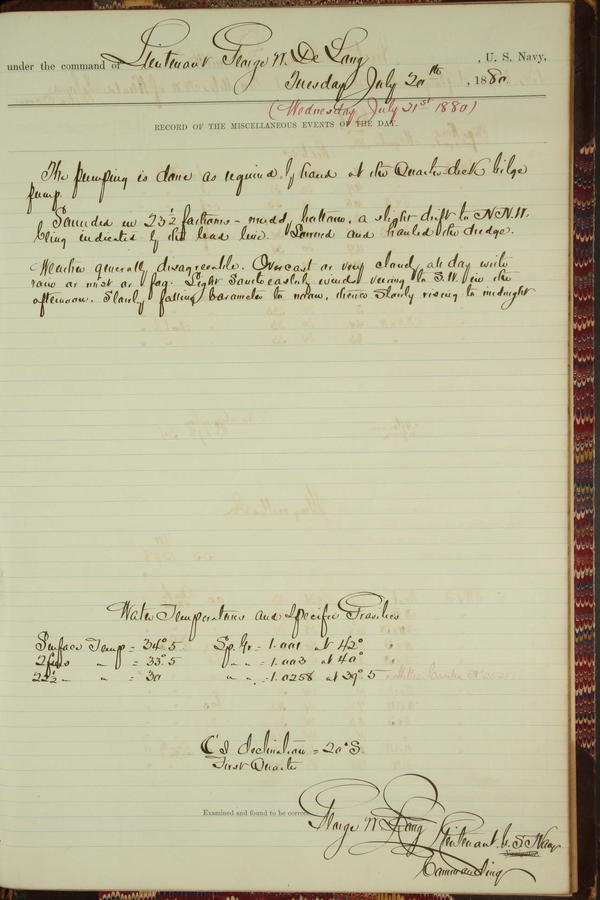 under the command of Lieutenant George W. De Long, U. S. Navy,
Tuesday July 20th, 1880
(Wednesday July 21st 1880)
RECORD OF THE MISCELLANEOUS EVENTS OF THE DAY.
The pumping is done as required by hand at the Quarter-deck bilge
pump.
Sounded in 23½ fathoms - mud bottom, a slight drift to N.N.W.
being indicated by the lead line. Lowered and hauled the dredge.
Weather generally disagreeable. Overcast or very cloudy all day with
rain or mist or fog. Light South easterly winds veering to S.W. in the
afternoon. Slowly falling barometer to noon, thence slowly rising to midnight
Water Temperatures and Specific Gravities
Surface Temp = 34°.5 Sp. Gr = 1.001 at 42°
2 fms " = 33°.5 " " = 1.003 at 40°
22½ " " = 30 " " = 1.0258 at 39°.5
☾'s declination = 20° S.
First Quarter
Examined and found to be correct.
George W. De Long Lieutenant, U. S. Navy
Commanding